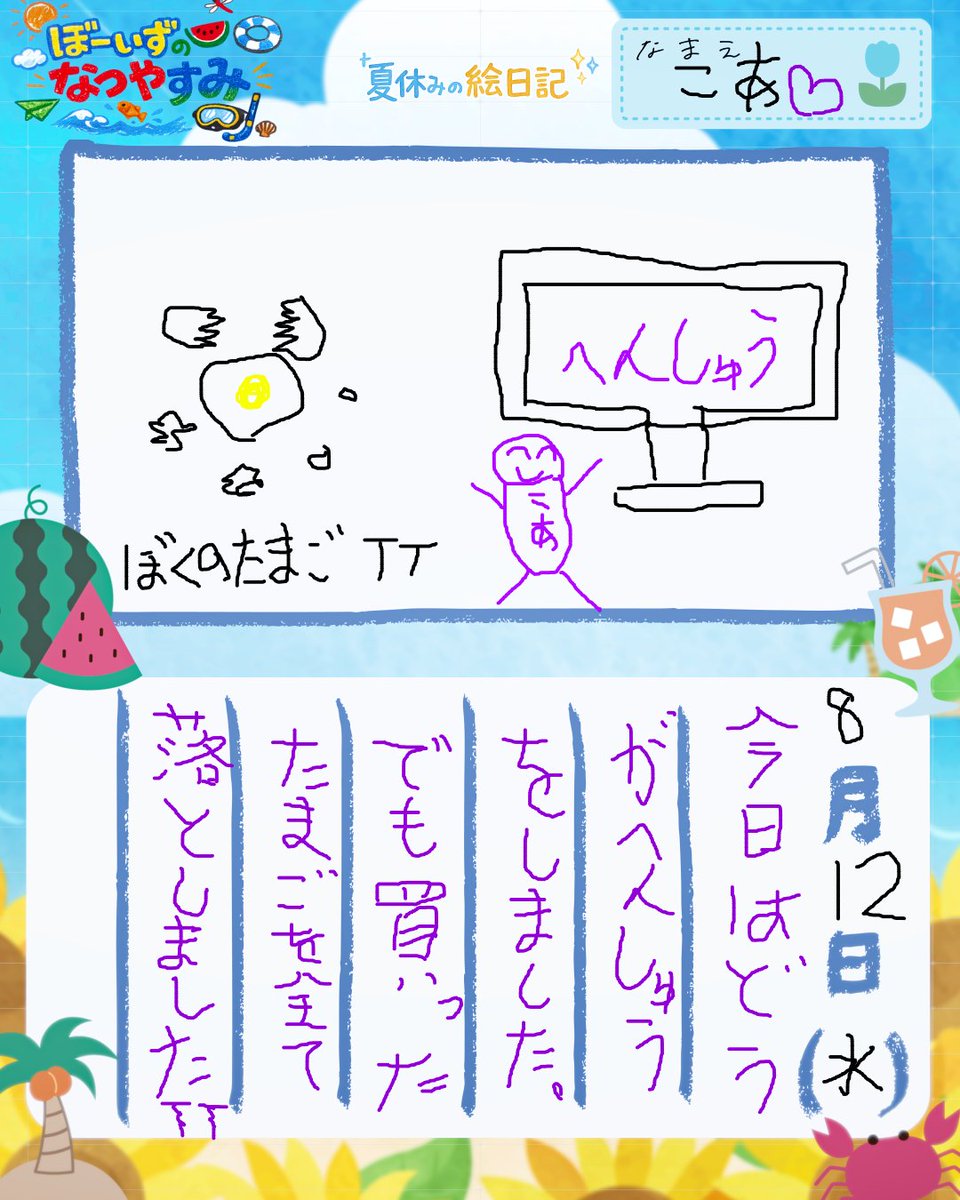 ぼーいずの
なつやすみ
夏休みの絵日記
なまえ
こあ
へんしゅう
こあ
ぼくのたまご TT
8月12日(水)
今日はどう
がへんしゅう
をしました。
でも買いった
たまごを全て
落としましたTT